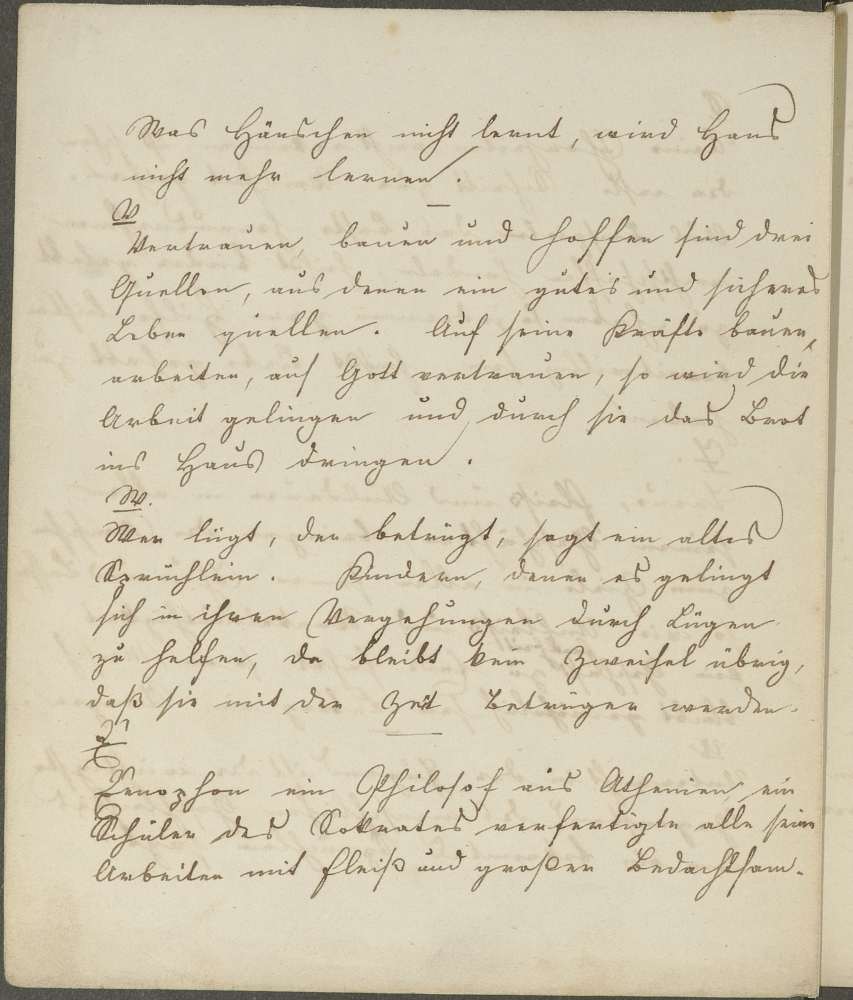 Was Hänschen nicht lernt, wird Hans
nicht mehr lernen.
V
Vertrauen, bauen und hoffen sind drei
Quellen, aus denen ein gutes und sicheres
Leben quellen. Auf seine Kräfte bauen,
arbeiten, auf Gott vertrauen, so wird die
Arbeit gelingen und durch sie das Brot
ins Haus dringen.
W.
Wer lügt, der betrügt, sagt ein altes
Sprüchlein. Kindern, denen es gelingt
sich in ihren Vergehungen durch Lügen
zu helfen, da bleibt kein Zweifel übrig,
daß sie mit der Zeit Betrüger werden.
X
Xenophon ein Philosof aus Athenien, ein
Schüler des Sokrates verfertigte alle seine
Arbeiten mit Fleiß und großer Bedachtsam-